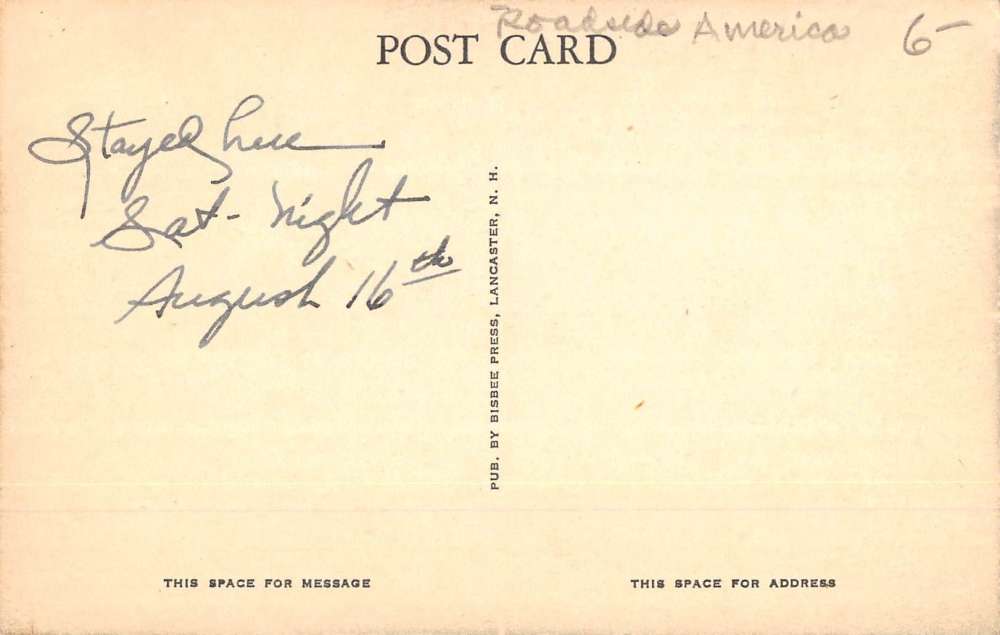 Roadside America 6-
POST CARD
Stayed here
Sat- Night
August 16th
PUB. BY BISBEE PRESS, LANCASTER, N. H.
THIS SPACE FOR MESSAGE
THIS SPACE FOR ADDRESS